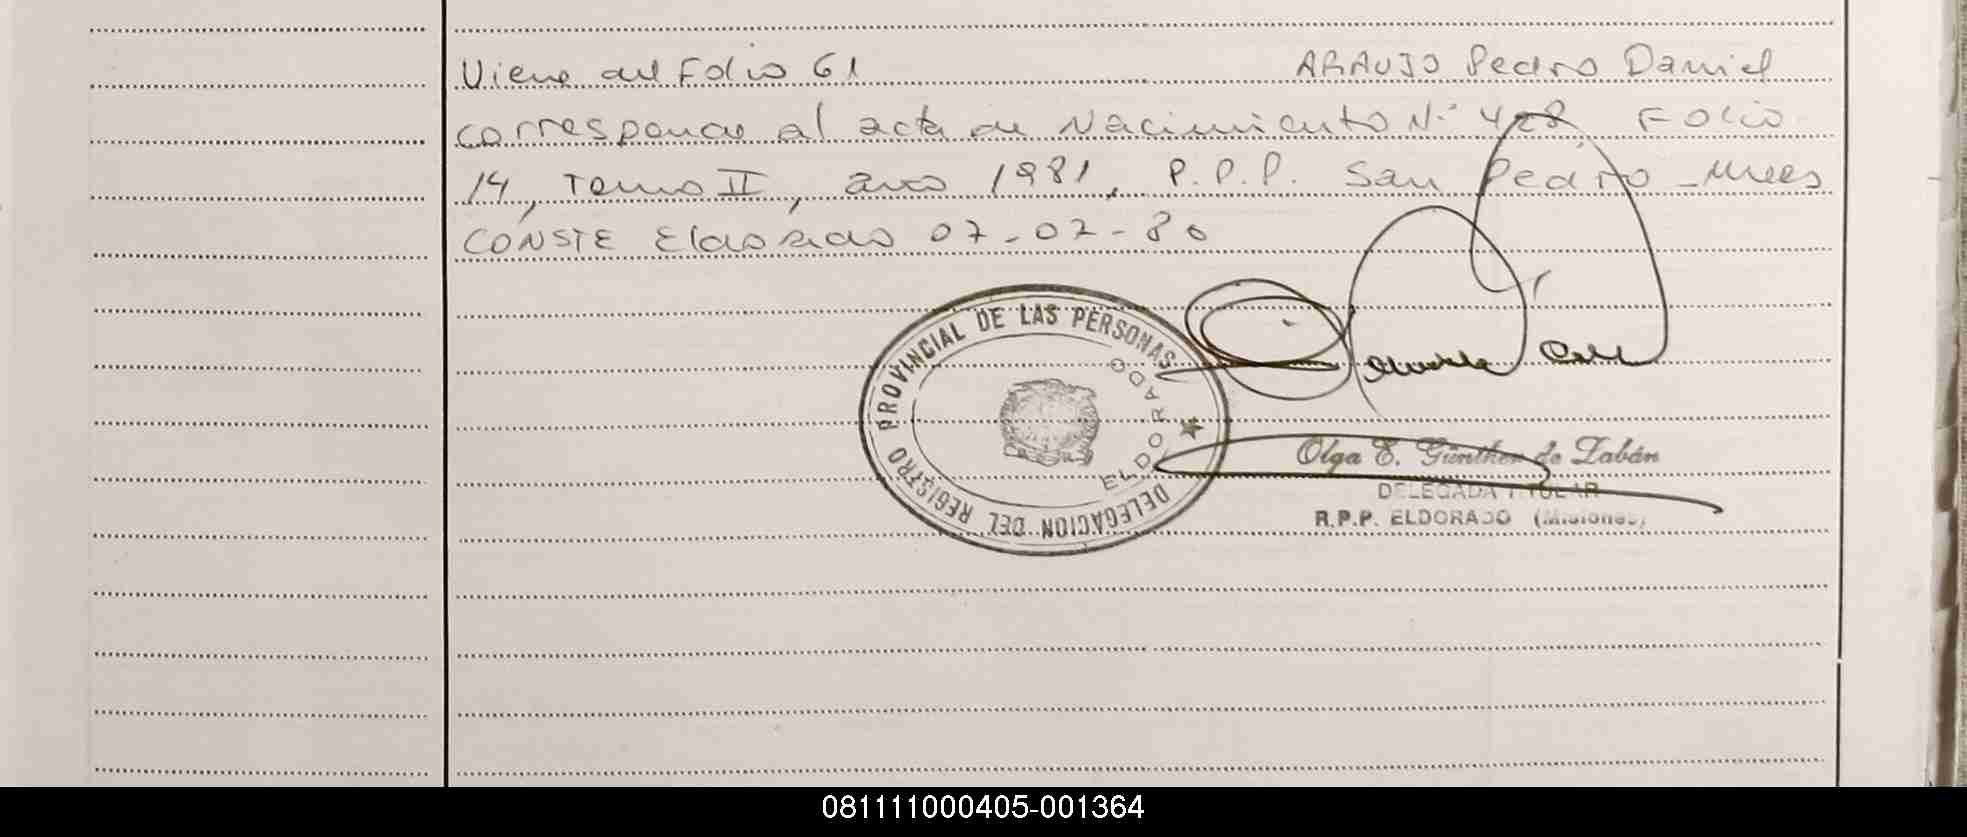 Viene del Folio 61 ARAUJO Pedro Daniel
corresponde al acta de Nacimiento N° 428 Folio
14, Tomo II, año 1981, P.P.P. San Pedro - Mnes
CONSTE Eldorado 07-07-80
DELEGACION DEL REGISTRO PROVINCIAL DE LAS PERSONAS
ELDORADO
Olga E. Günther de Zabán
DELEGADA TITULAR
R.P.P. ELDORADO (Misiones)
081111000405-001364